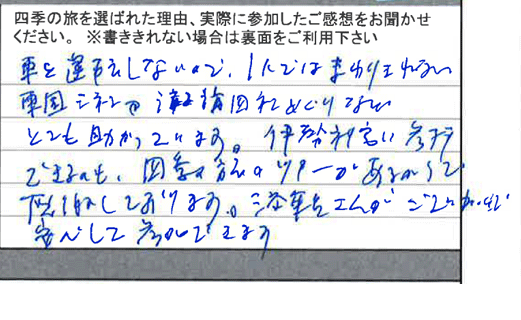 四季の旅を選ばれた理由、実際に参加したご感想をお聞かせ
ください。 ※書ききれない場合は裏面をご利用下さい
車を運転しないので、1人ではまわりきれない
東国三社や 諸国 めぐりなど
とても助かっています。伊勢神宮に参拝
できるのも、四季の旅のツアーがあるからで
感謝しております。添乗員さんが ので
安心して参加できます